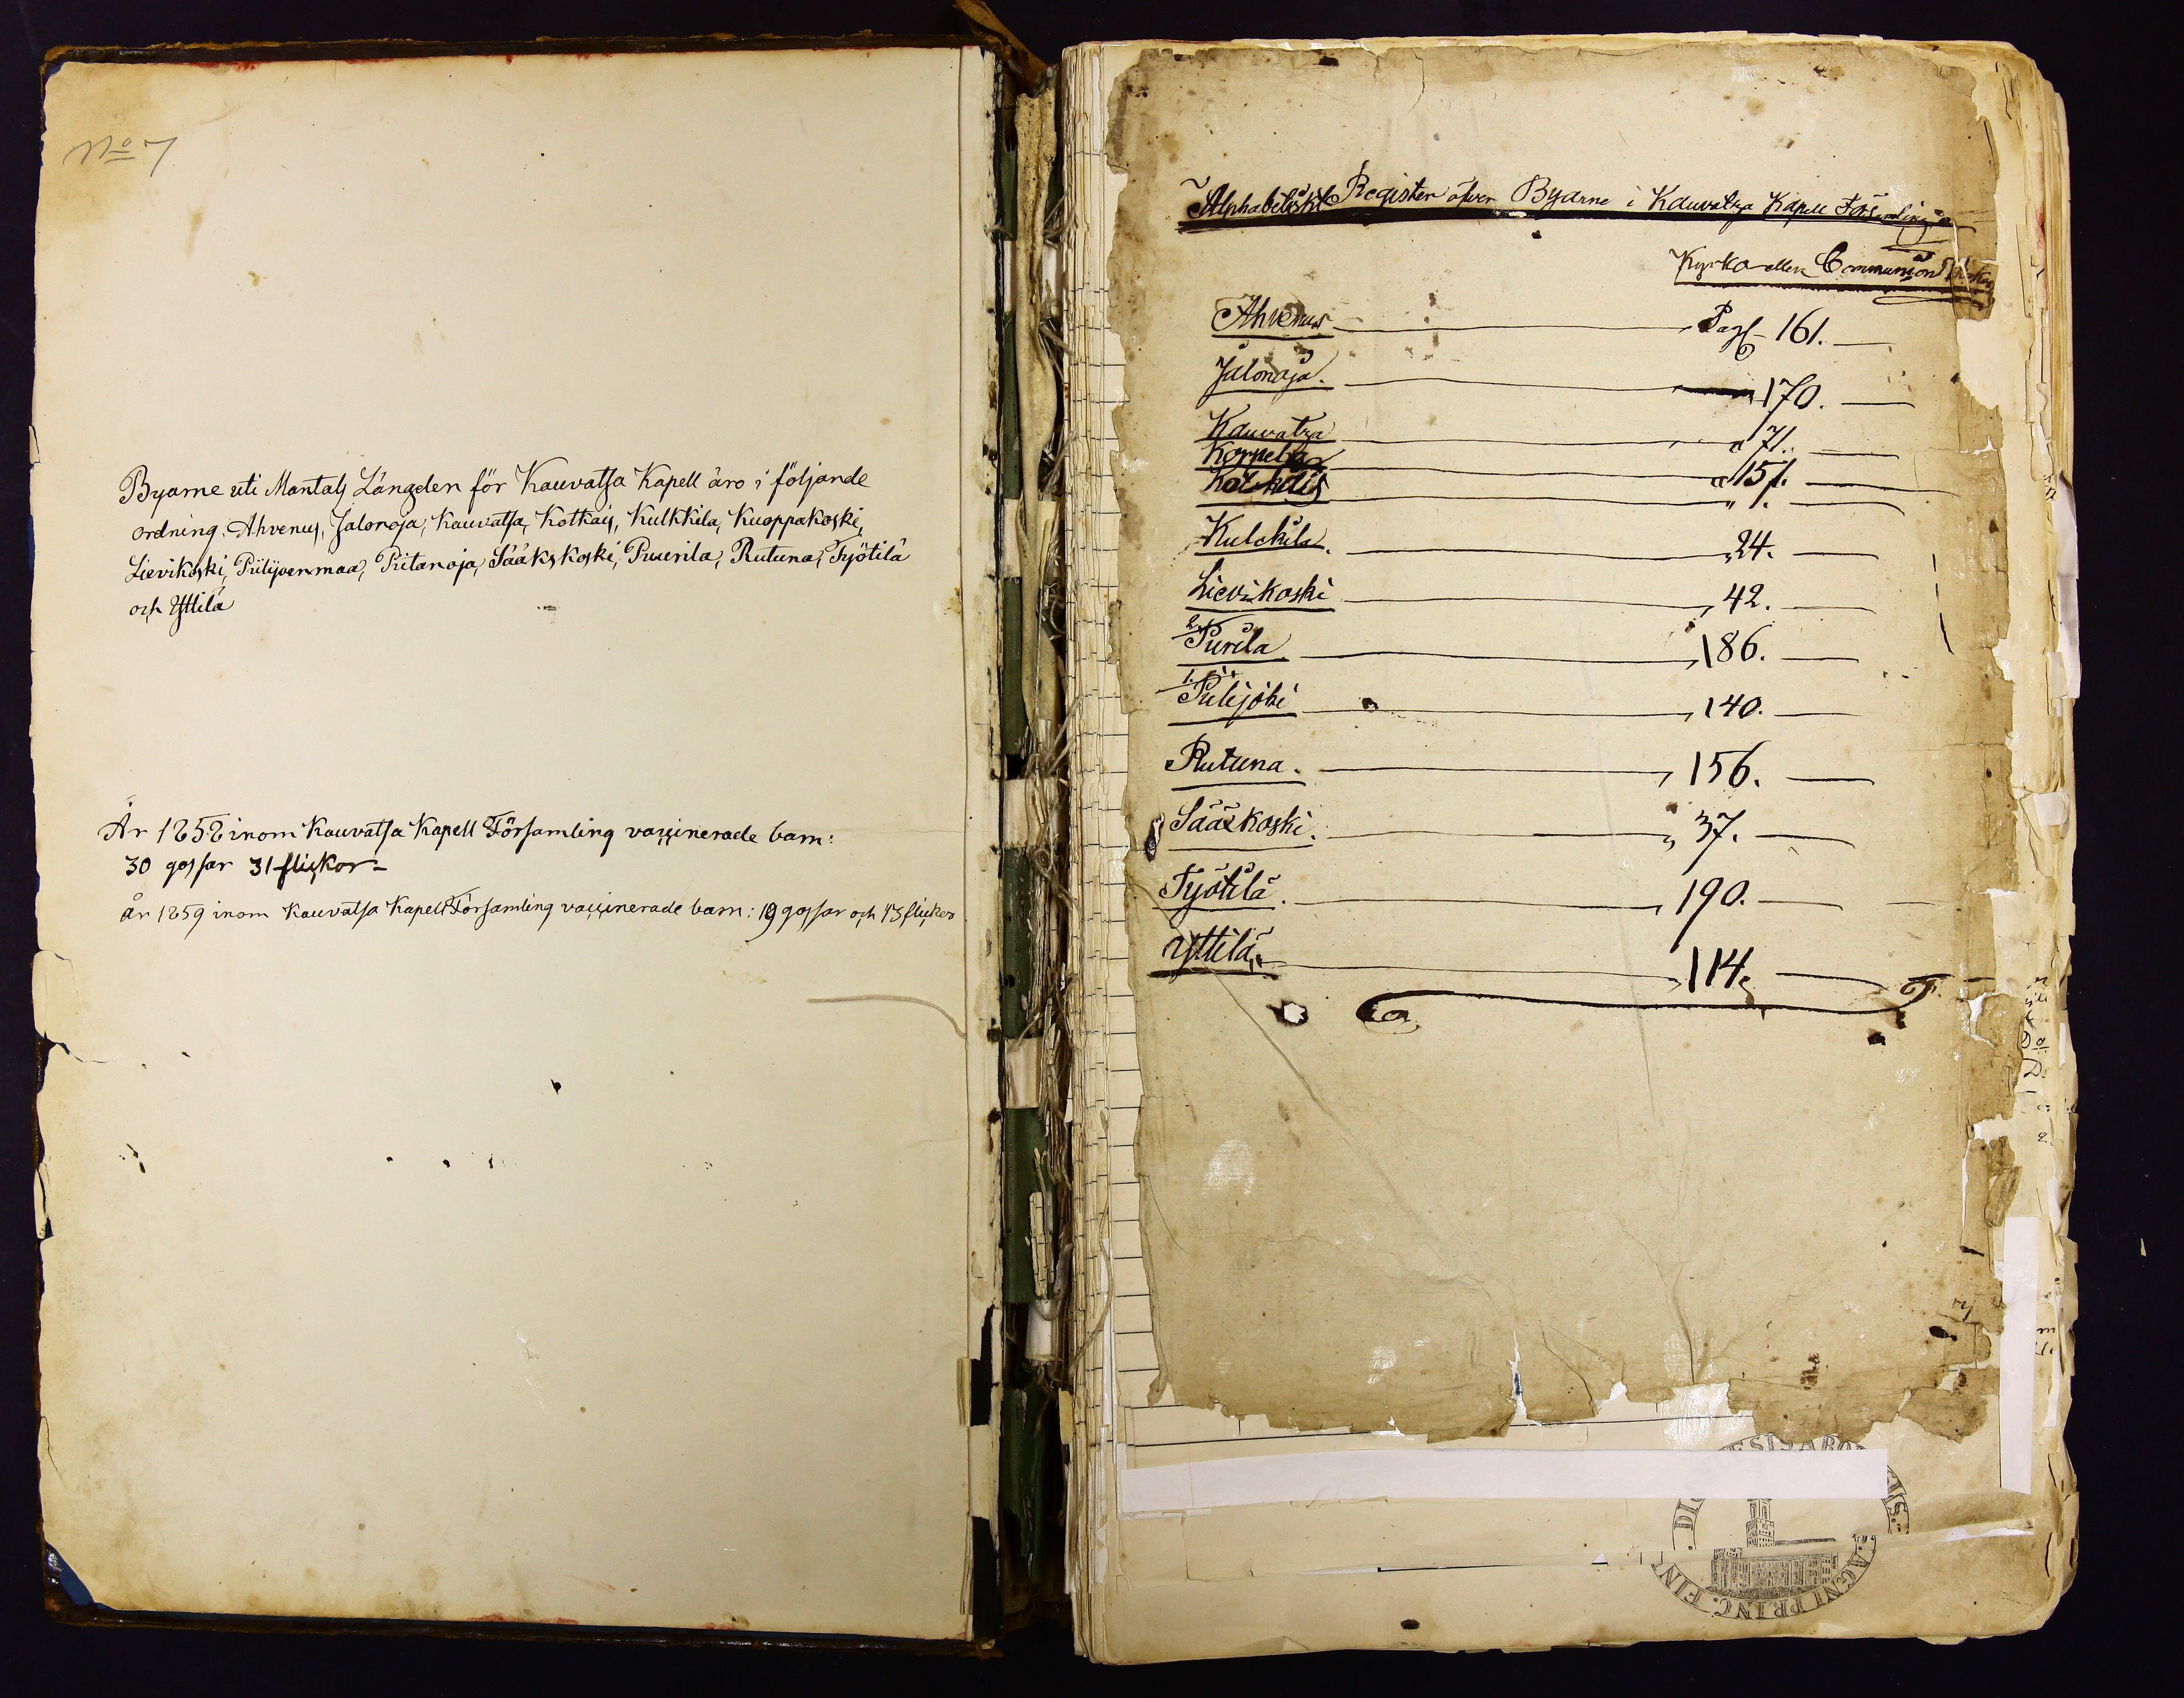 No 7
Byarne uti Mantals Längden för Kauvatsa Kapell äro i följande
ordning: Ahvenus, Jalonoja, Kauvatsa, Kotkais, Kulkkila, Kuoppakoski,
Lievikoski, Piilijoenmaa, Piitanoja, Sääkskoski, Puurila, Rutuna, Työtilä
och Yttilä
År 1858 inom Kauvatsa Kapell Församling vaccinerade barn:
30 gossar 31 flickor
år 1859 inom Kauvatsa Kapell Församling vaccinerade barn: 19 gossar och 43 flickor
Alphabetiskt Register öfver Byarne i Kauvatza Kapell Församlings
Kyrko eller Communion Boken
Ahvenus Pag 161.
Jalonoja. 170.
Kauvatza " 71.
Korpela " 151.
" 1.
Kulckila. " 24.
Lievikoski " 42.
2. Purila " 186.
1. Piilijoki " 140.
Rutuna. " 156.
Sääxkoski. " 37.
Työtilä. " 190.
Yttilä. " 114.
DI ESIS ABO IS. MAGNI PRINC. FIN